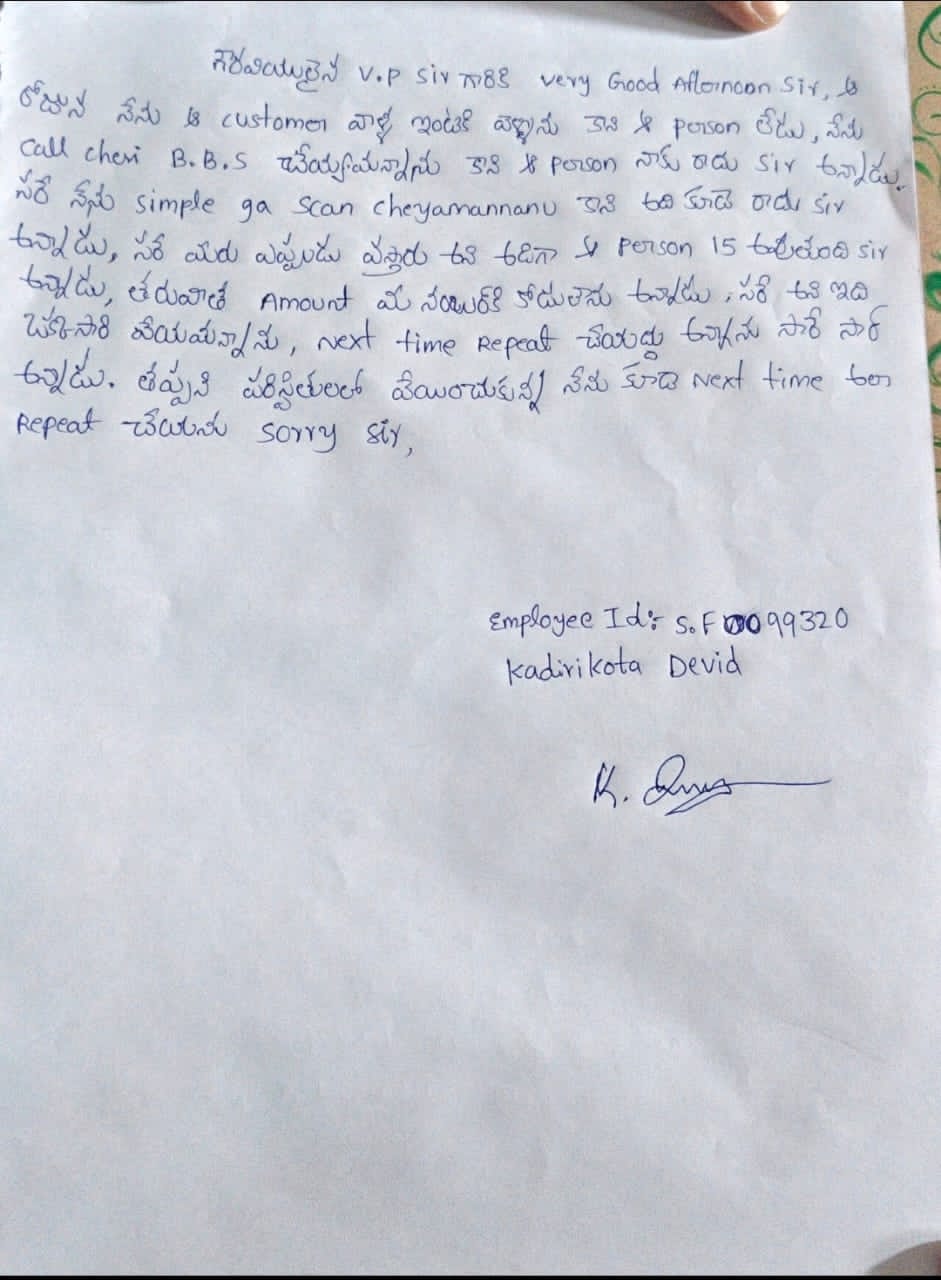 గౌరవనీయులైన V.P Sir గారికి very Good Afternoon Sir, ఆ
రోజున నేను ఆ customer వాళ్ళ ఇంటికి వెళ్ళాను కాని ఆ person లేడు, నేను
Call chesi B.B.S చేయ్యమన్నాను కాని ఆ person నాకు రాదు sir అన్నాడు.
సరే నేను simple ga scan cheyamannanu కాని అది కూడా రాదు sir
అన్నాడు, సరే మరు ఎప్పుడు వస్తారు అని అడిగా ఆ person 15 అవుతుంది sir
అన్నాడు, తరువాత Amount మీ నంబర్‌కి అన్నాడు, సరే అని ఇది
ఒక్కసారి వేయమన్నాను, Next time Repeat చేయద్దు అన్నాను సారే సార్
అన్నాడు. తప్పని పరిస్థితులలో నేను కూడా Next time అలా
Repeat చేయను sorry sir,
Employee Id: S.F0099320
Kadirikota Devid
K.